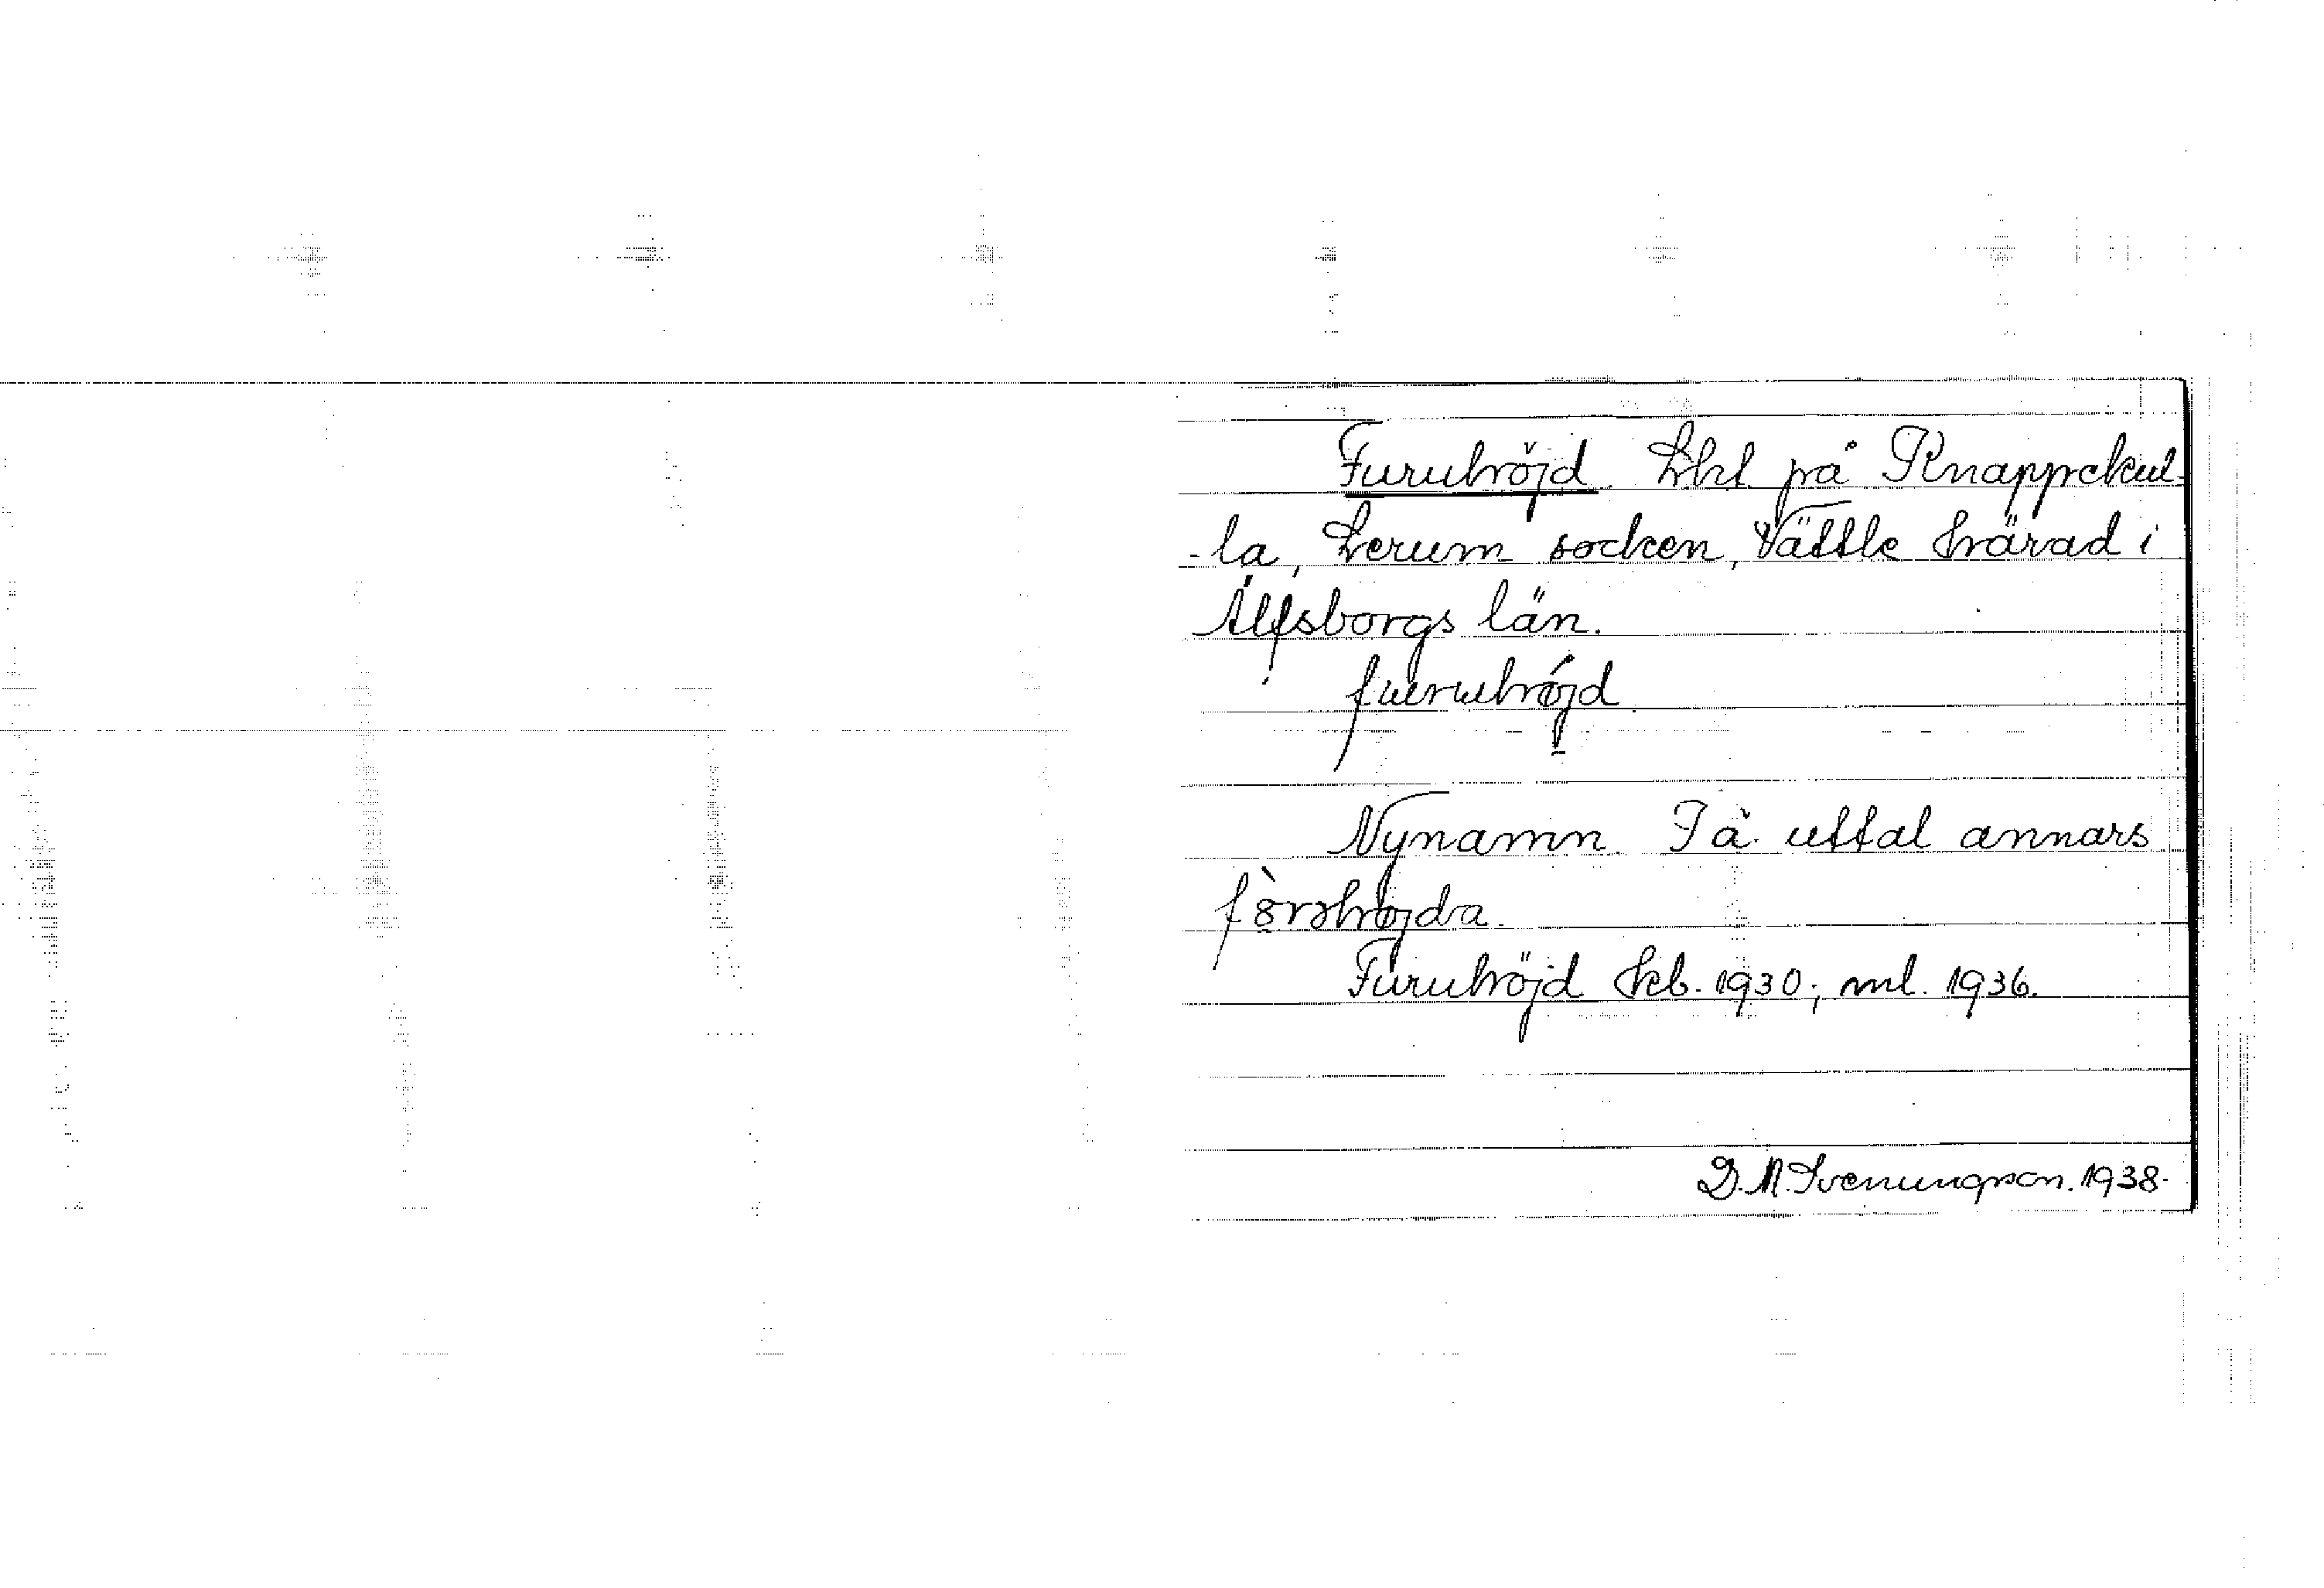 Furuhöjd. Lht på Knappekul-
-la, Lerum socken, Vättle härad i
Älfsborgs län.
furuhöjd
Nynamn. Jä uttal annars
Furuhöjd Jeb. 1930; ml. 1936.
D. N. Svenungson. 1938.